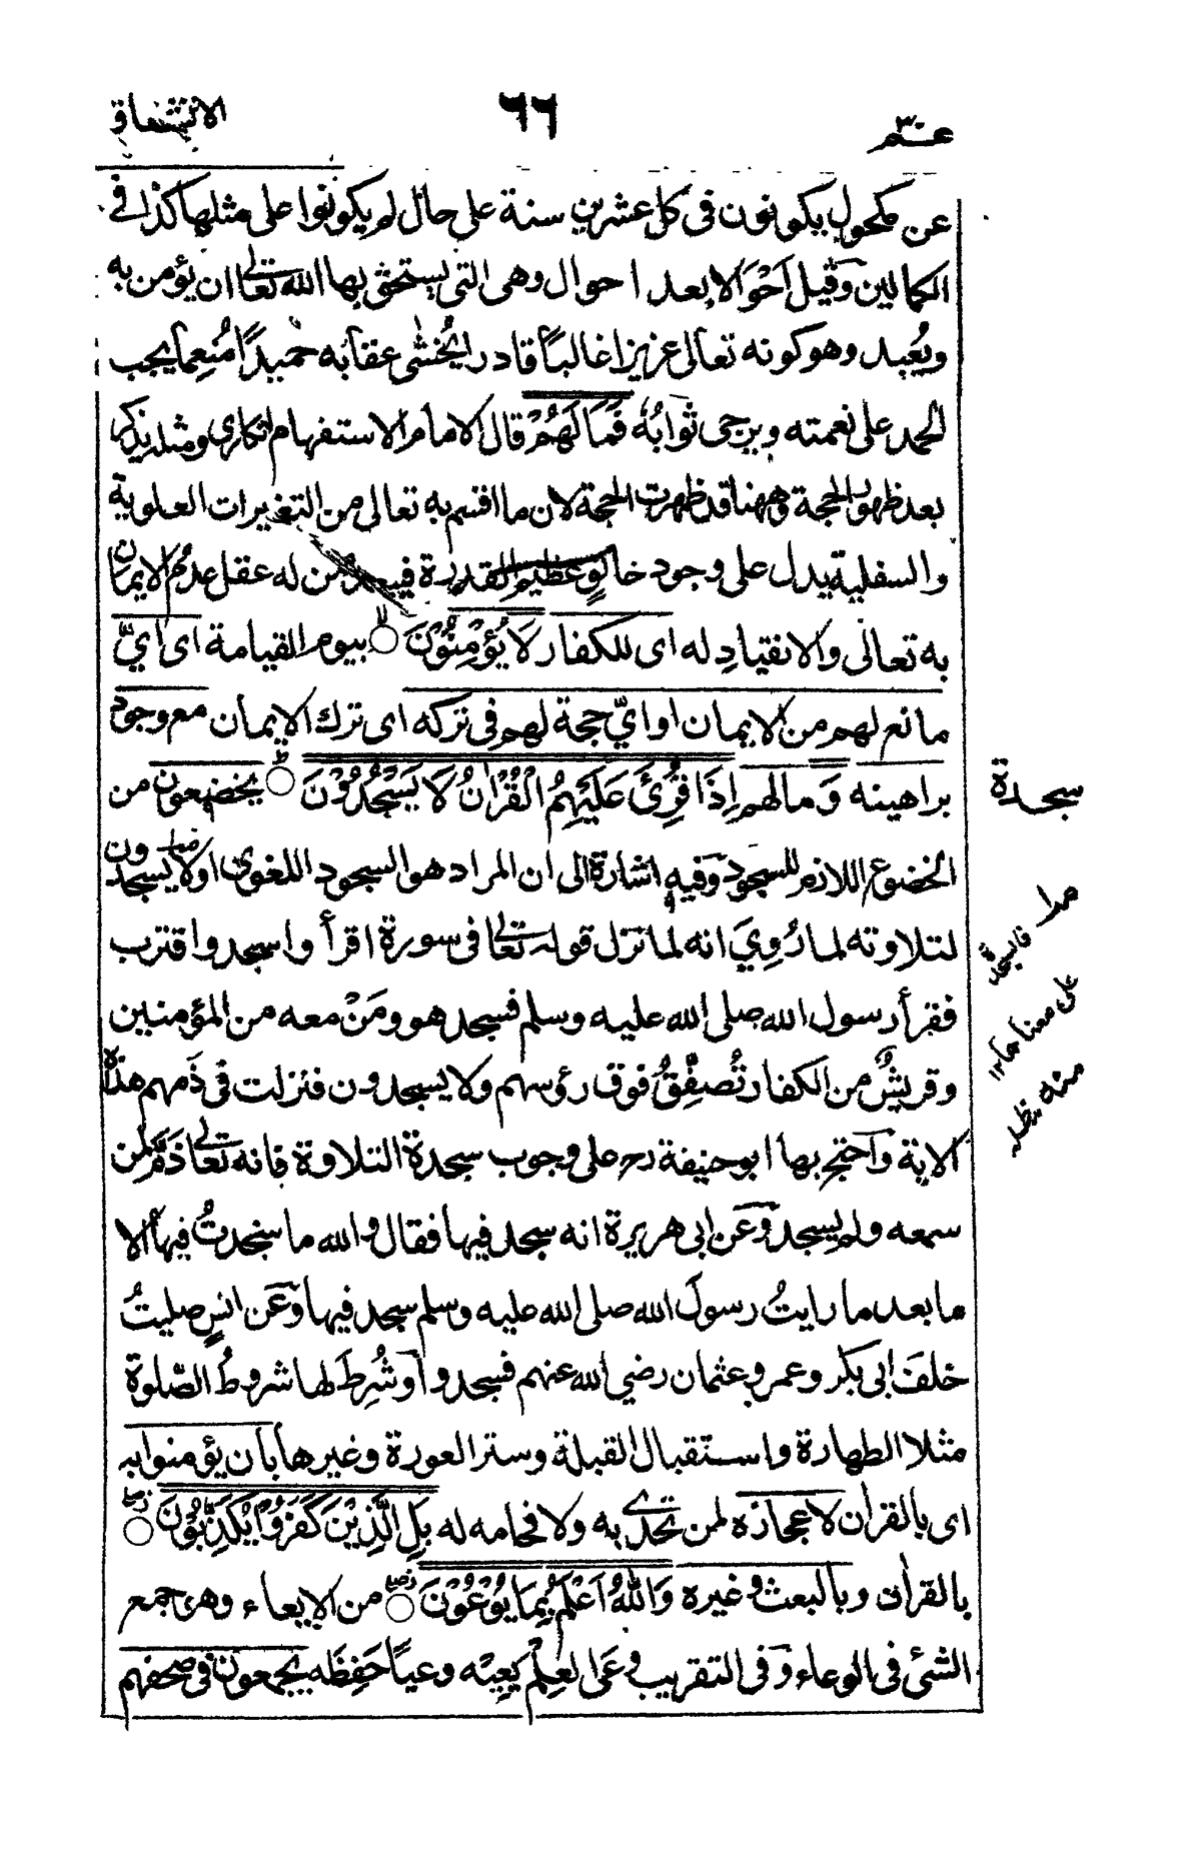 عم ٣٠
٦٦
الانشقاق
عن مكحول يكونون فى كل عشرين سنة على حال لم يكونوا على مثلها كذا فى
الكمالين وقيل احوالا بعد احوال وهى التى يستحق بها الله تعالى ان يؤمن به
ويُعبد وهو كونه تعالى عزيزا غالبًا قادرا يُخشٰى عقابُه حميدًا مُنعِما يجب
الحمد على نعمته ويرجى ثوابُهٗ فَمَا لَهُمْ قال الامام الاستفهام انكارى ومثله يذكر
بعد ظهور الحجة وههنا قد ظهرت الحجة لان ما اقسم به تعالى من التغيرات العلوية
والسفلية يدل على وجود خالقٍ عظيم القدرة فيبعد من له عقل عدم الايمان
به تعالى والانقيادِ له اى للكفار لَا يُؤْمِنُوْنَ ۙ بيوم القيامة اى ايُّ
مانع لهم من الايمان او ايّ حجة لهم فى تركه اى ترك الايمان مع وجود
براهينه وَمالهم اِذَا قُرِئَ عَلَيْهِمُ الْقُرْاٰنُ لَا يَسْجُدُوْنَ ؕ يخضعون من
الخضوع اللازم للسجود وفيه اشارة الى ان المراد هو السجود اللغوى او لا يسجدون
لتلاوته لما رُوِيَ انه لما نزل قوله تعالى فى سورة اقرأ واسجد واقترب
فقرأ رسول الله صلى الله عليه وسلم فسجد هو ومَنْ معه من المؤمنين
وقريشٌ من الكفار تُصفِّقُ فوق رؤسهم ولا يسجدون فنزلت فى ذمهم هذه
الاية واحتج بها ابو حنيفة رح على وجوب سجدة التلاوة فانه تعالى ذَمَّ لمن
سمعه ولم يسجد وعن ابى هريرة انه سجد فيها فقال والله ما سجدتُ فيها الا
ما بعد ما رايتُ رسولَ الله صلى الله عليه وسلم سجد فيها وعن انسٍ صليتُ
خلفَ ابى بكر وعمر وعثمان رضي الله عنهم فسجدوا وشُرِطَ لها شروطُ الصّلٰوة
مثلا الطهارة واستقبال القبلة وستر العورة وغيرها بان يؤمنوا به
اى بالقرآن لاعجازه لمن تحدّى به ولافحامه له بَلِ الَّذِيْنَ كَفَرُوْا يُكَذِّبُوْنَ
بالقرآن وبالبعث وغيره وَاللّٰهُ اَعْلَمُ بِمَا يُوْعُوْنَ من الايعاء وهى جمع
الشئ فى الوعاء وفى التقريب وعَى العِلمَ يَعِيْه وعيًا حَفِظَه يجمعون فى صحفهم
سجدة